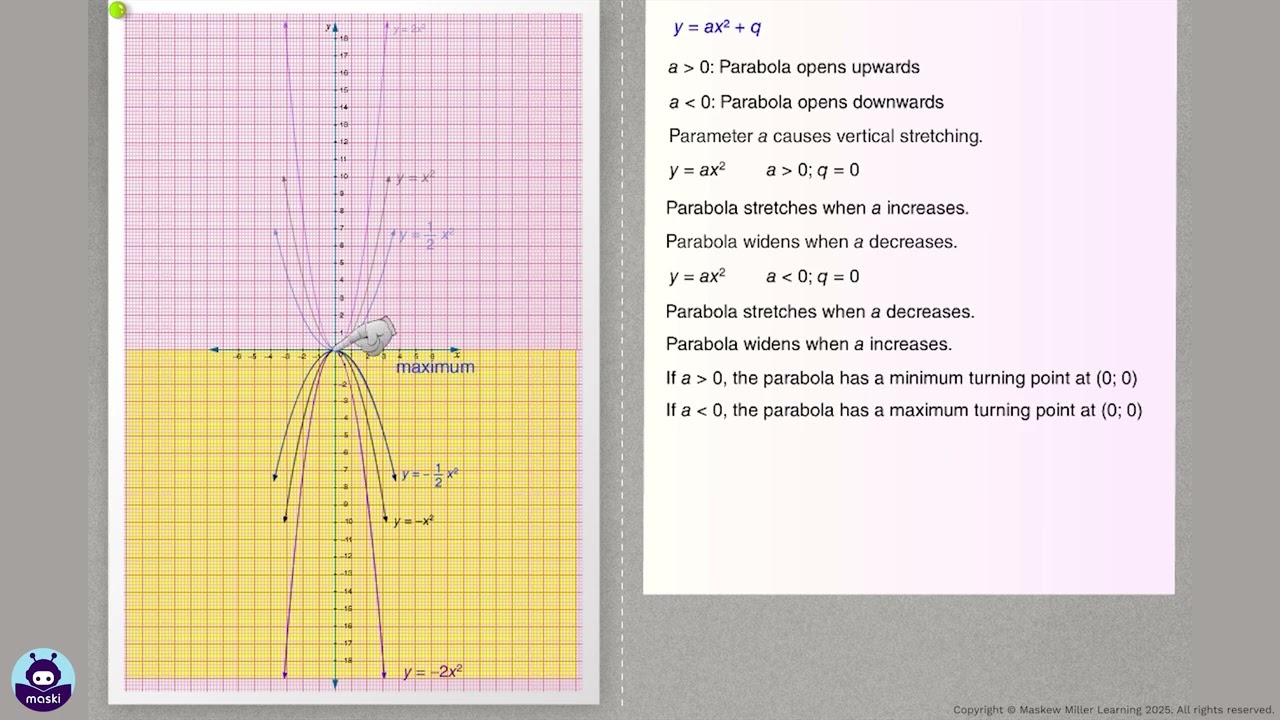 y
y = 2x²
18
17
16
15
14
13
12
11
10
9
8
7
6
5
4
3
2
1
y = x²
y = 1/2 x²
-6 -5 -4 -3 -2 -1 2 3 4 5 6 x
maximum
-2
-3
-4
-5
-6
-7
-8
-9
-10
-11
-12
-13
-14
-15
-16
-17
-18
y = - 1/2 x²
y = –x²
y = –2x²
y = ax² + q
a > 0: Parabola opens upwards
a < 0: Parabola opens downwards
Parameter a causes vertical stretching.
y = ax² a > 0; q = 0
Parabola stretches when a increases.
Parabola widens when a decreases.
y = ax² a < 0; q = 0
Parabola stretches when a decreases.
Parabola widens when a increases.
If a > 0, the parabola has a minimum turning point at (0; 0)
If a < 0, the parabola has a maximum turning point at (0; 0)
maski
Copyright © Maskew Miller Learning 2025. All rights reserved.